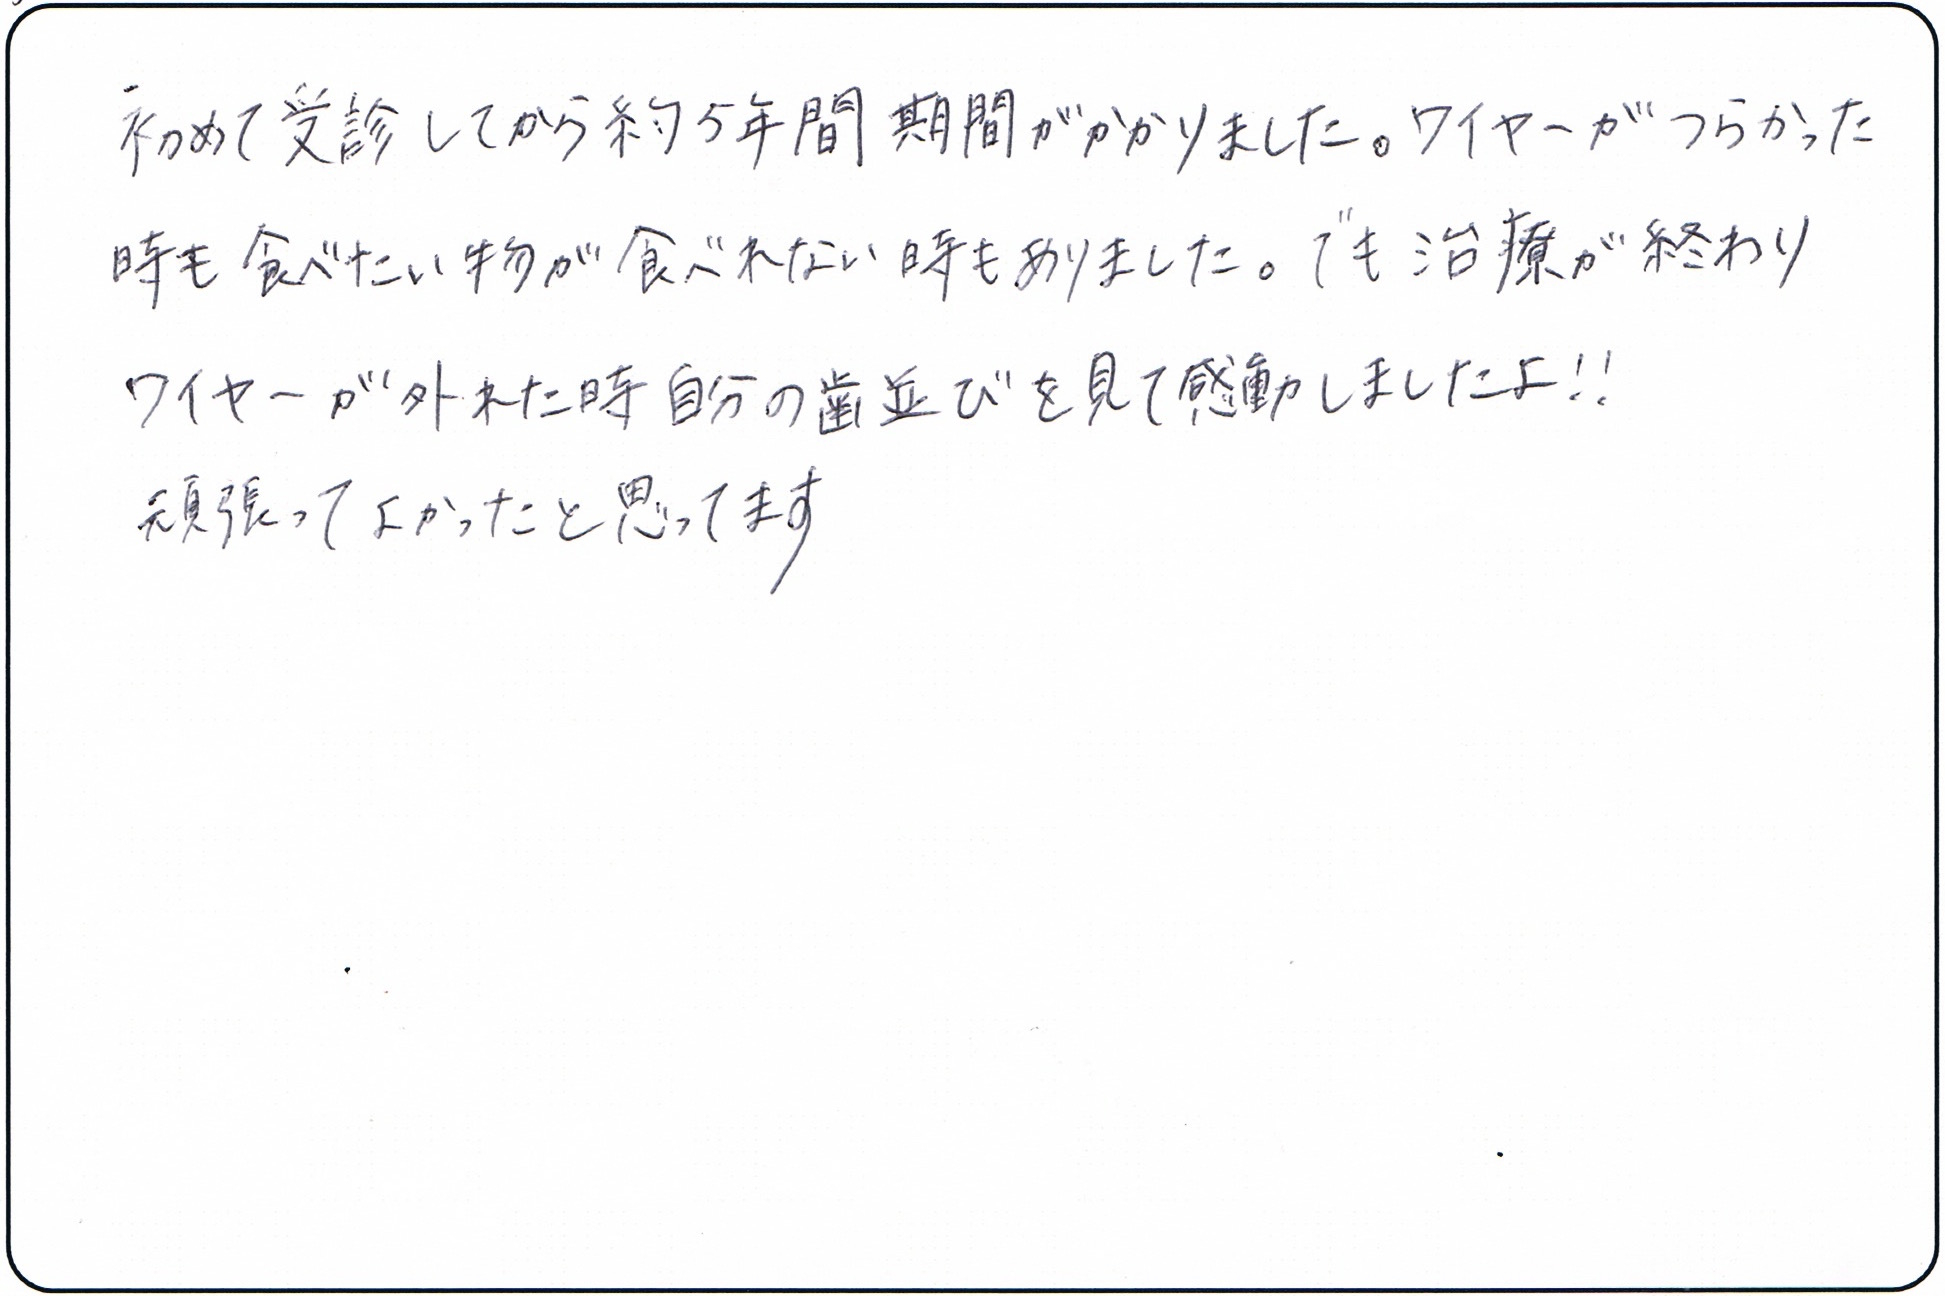 初めて受診してから約5年間 期間がかかりました。ワイヤーがつらかった
時も食べたい物が食べれない時もありました。でも治療が終わり
ワイヤーが外れた時自分の歯並びを見て感動しましたよ!!
頑張ってよかったと思ってます